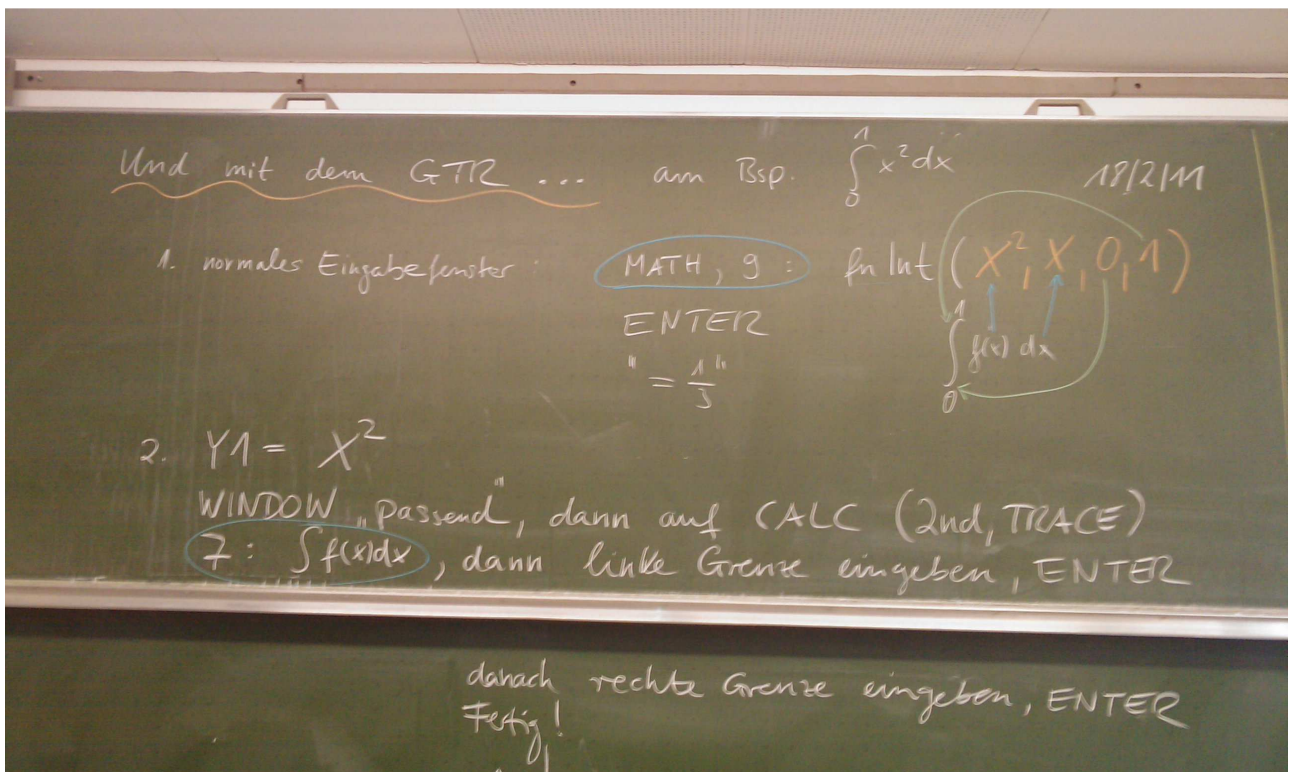 Und mit dem GTR ... am Bsp. ∫₀¹ x² dx 18/2/11
1. normales Eingabefenster : MATH, 9 : fnInt (X², X, 0, 1)
ENTER
∫₀¹ f(x) dx
" = 1/3 "
2. Y1 = X²
WINDOW „passend", dann auf CALC (2nd, TRACE)
7 : ∫f(x)dx, dann linke Grenze eingeben, ENTER
danach rechte Grenze eingeben, ENTER
Fertig!